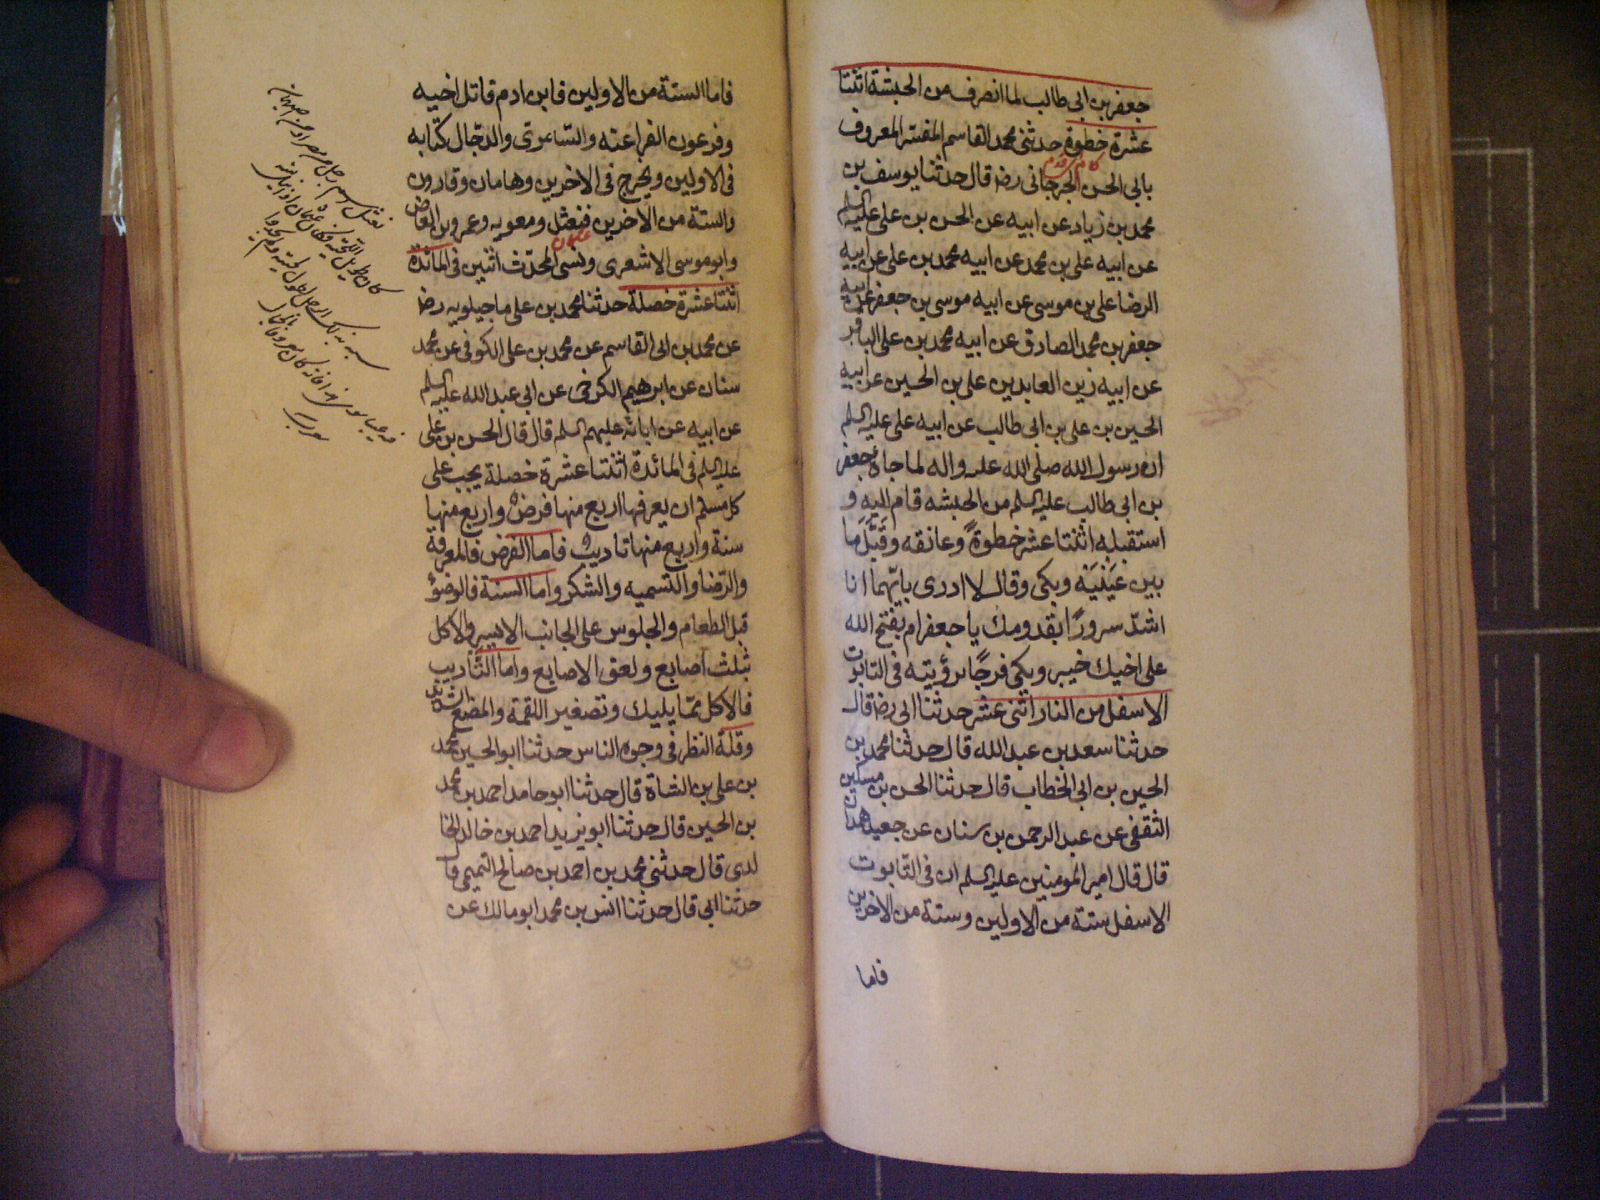 جعفر بن ابى طالب لما انصرف من الحبشة اثنتا
عشرة خطوة حدثنى محمد القاسم المفسّر المعروف
بابى الحسن الجرجانى رضه قال حدثنا يوسف بن
محمد بن زياد عن ابيه عن الحسن بن على عليه السلم
عن ابيه على بن محمد عن ابيه محمد بن على عن ابيه
الرضا على بن موسى عن ابيه موسى بن جعفر عن ابيه
جعفر بن محمد الصادق عن ابيه محمد بن على الباقر
عن ابيه زين العابدين على بن الحسين عن ابيه
الحسين بن على بن ابى طالب عن ابيه على عليه السلم
ان رسول الله صلى الله عليه واله لما جاءه جعفر
بن ابى طالب عليه السلم من الحبشه قام اليه و
استقبله اثنتا عشر خطوةً وعانقه وقَبَّلَ ما
بين عَيْنَيْه وبكى وقال لا ادرى بايّهما انا
اشدّ سرورًا بقدومك يا جعفر ام بفتح الله
على اخيك خيبر وبكى فرحًا برؤيته فى التابوت
الاسفل من النار اثنى عشر حدثنا ابى رضه قال
حدثنا سعد بن عبد الله قال حدثنا محمد بن
الحسين بن ابى الخطاب قال حدثنا الحسن بن مسكين
الثقفى عن عبد الرحمن بن سنان عن جعيد همدان
قال قال امير المومنين عليه السلم ان فى التابوت
الاسفل ستة من الاولين وستة من الاخرين
فاما
فاما الستة من الاولين فابن ادم قاتل اخيه
وفرعون الفراعنه والسّامرى والدجّال كتابه
فى الاولين ويخرج فى الاخرين وهامان وقارون
والستة من الاخرين فنعثل ومعويه وعمرو بن العاص
وابو موسى الاشعرى ونسى المحدّث اثنين فى المائدة
اثنتا عشرة خصلة حدثنا محمد بن على ماجيلويه رضه
عن محمد بن ابى القاسم عن محمد بن على الكوفى عن محمد
سنان عن ابرهيم الكرخى عن ابى عبد الله عليه السلم
عن ابيه عن ابائه عليهم السلم قال قال الحسن بن على
عليه السلم فى المائدة اثنتا عشرة خصلة يجب على
كل مسلم ان يعرفها اربع منها فرضٌ واربع منها
سنة واربع منها تاديبٌ فاما الفرض فالمعرفة
والرّضا والتسميه والشكر واما السنة فالوضوُ
قبل الطعام والجلوس على الجانب الايسر والاكل
بثلث اصابع ولعق الاصابع واما التّاديب
فالاكل ممّا يليك وتصغير اللقمة والمضغ الشديد
وقلة النظر فى وجوه الناس حدثنا ابو الحسين محمد
بن على بن الشاة قال حدثنا ابو حامد احمد بن محمد
بن الحسين قال حدثنا ابو يزيد احمد بن خالد الخا
لدى قال حدثنى محمد بن احمد بن صالح التميمى قال
حدثنا ابى قال حدثنا انس بن محمد ابو مالك عن